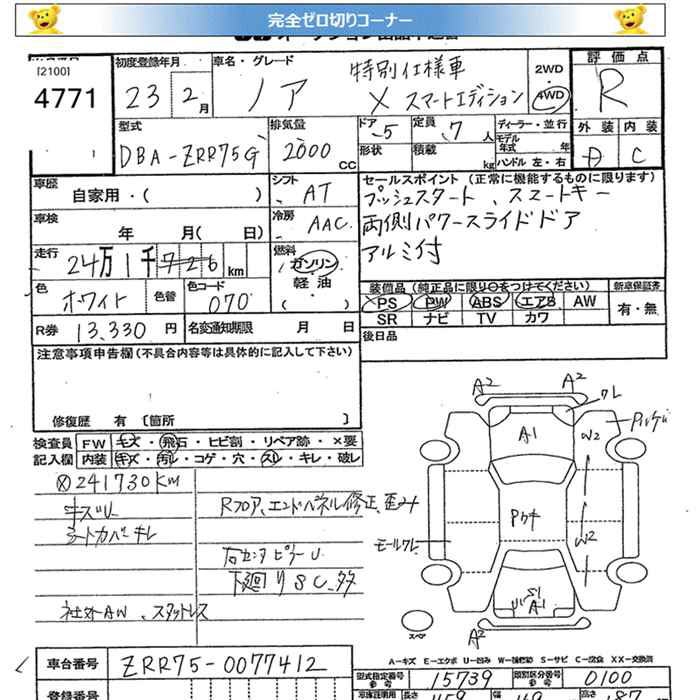 完全ゼロ切りコーナー
[2100]
4771
初度登録年月
23 2月
車名・グレード
ノア
特別仕様車
X スマートエディション
2WD
・
4WD
評価点
R
型式
DBA-ZRR75G
排気量
2000 CC
ドア 5
定員 7 人
形状
積載 kg
ディーラー・並行
モデル年式 年
ハンドル 左・右
外装
内装
D
C
車歴
自家用・( )
シフト
AT
冷房
AAC
セールスポイント (正常に機能するものに限ります)
プッシュスタート、スマートキー
両側パワースライドドア
アルミ付
車検
年 月( 日)
走行
24万1千726 km
燃料
ガソリン
軽油
( )
色
ホワイト
色替
色コード
070
装備品 (純正品に限り○をつけてください)
PS PW ABS エアB AW
SR ナビ TV カワ
新車保証書
有・無
R券 13,330 円
名変通知期限 月 日
後日品
注意事項申告欄 (不具合内容等は具体的に記入して下さい)
修復歴 有 〔箇所 〕
検査員記入欄
FW キズ・飛石・ヒビ割・リペア跡・×要
内装 キズ・汚レ・コゲ・穴・スレ・キレ・破レ
241730KM
キズU
シートカバーキレ
社外AW、スタットレス
Rフロア、エンドパネル修正、歪み
右センターピラーU
下廻りSC、多
A2
A2
ワレ
A1
W2
Pハケ
W2
モールワレ
S1
A1
A2
スペア
A-キズ E-エクボ U-凹み W-補修跡 S-サビ C-腐食 XX-交換済
車台番号 ZRR75-0077412
型式指定番号 15739
類別区分番号 0100
登録番号
車庫証明用
長さ
459
幅
169
高さ
187